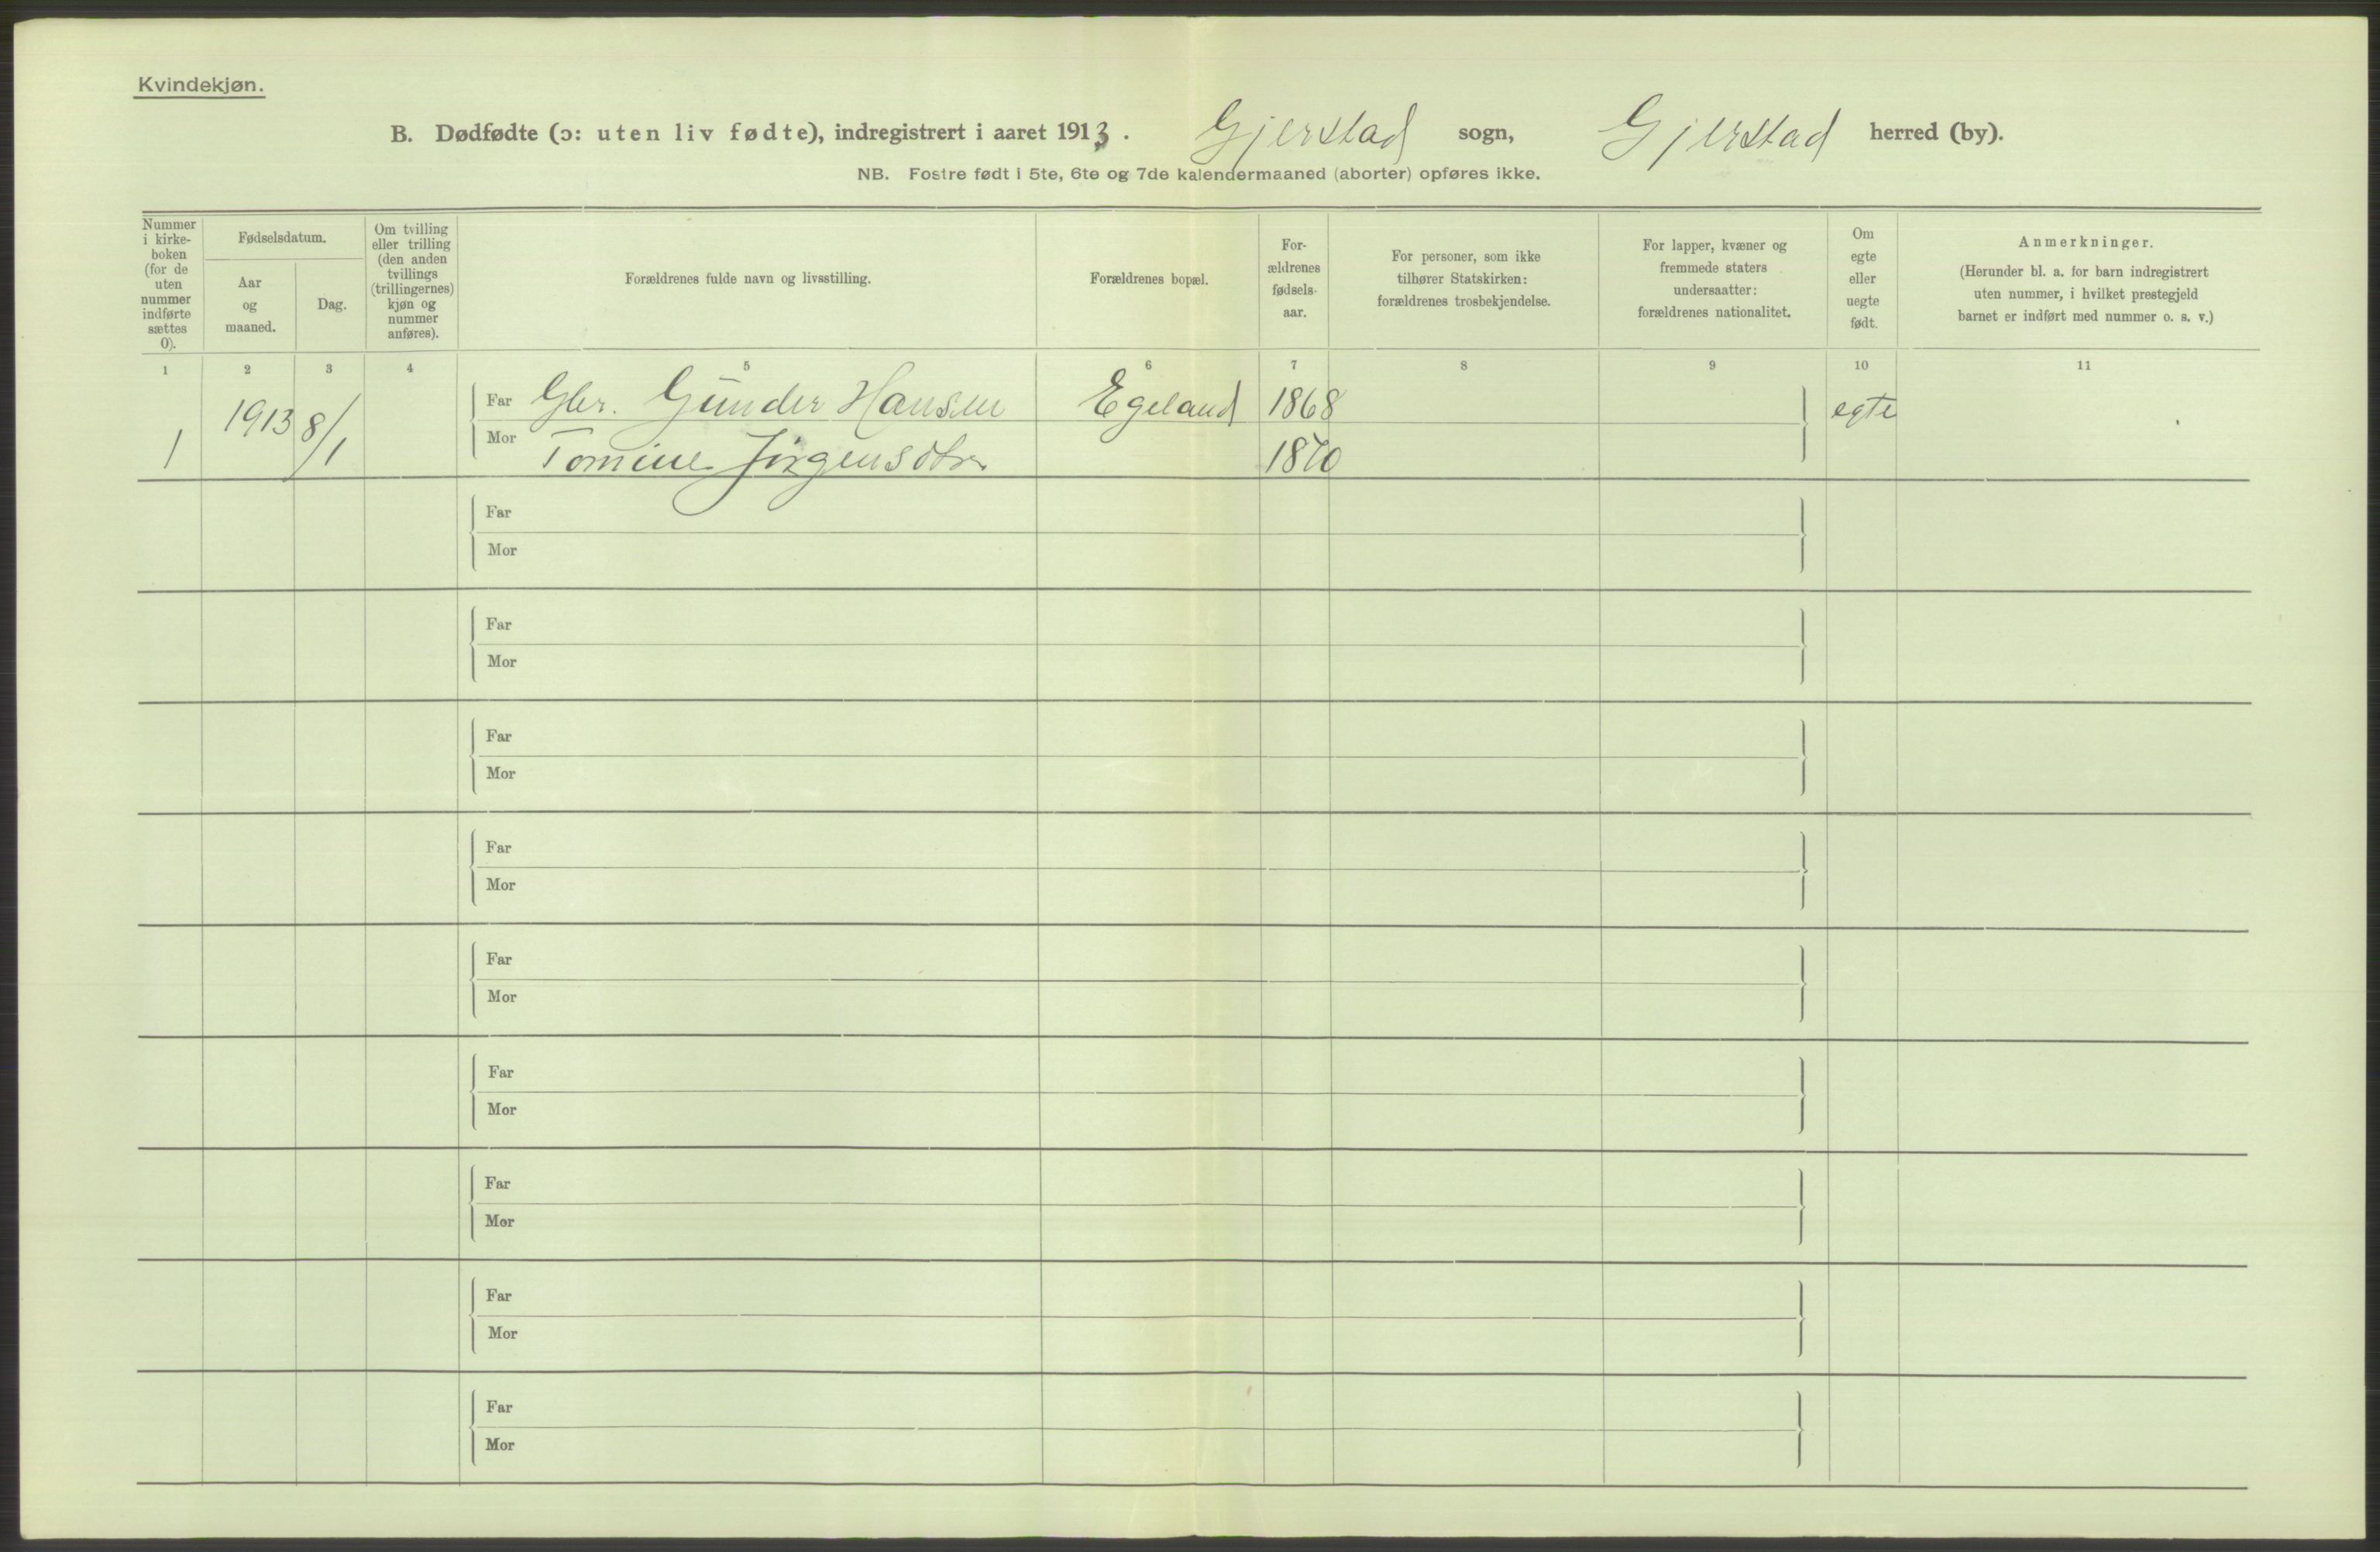 Kvindekjøn.
B. Dødfødte (ɔ: uten liv fødte), indregistrert i aaret 1913. Gjerstad sogn, Gjerstad herred (by).
NB. Fostre født i 5te, 6te og 7de kalendermaaned (aborter) opføres ikke.
Nummer i kirke-boken (for de uten nummer indførte sættes 0).
Fødselsdatum.
Aar og maaned.
Dag.
Om tvilling eller trilling (den anden tvillings (trillingernes) kjøn og nummer anføres).
Forældrenes fulde navn og livsstilling.
Forældrenes bopæl.
For-ældrenes fødsels-aar.
For personer, som ikke tilhører Statskirken: forældrenes trosbekjendelse.
For lapper, kvæner og fremmede staters undersaatter: forældrenes nationalitet.
Om egte eller uegte født.
Anmerkninger.
(Herunder bl. a. for barn indregistrert uten nummer, i hvilket prestegjeld barnet er indført med nummer o. s. v.)
1 2 3 4 5 6 7 8 9 10 11
1 1913 8/1 Far Gbr. Gunder Hansen Egeland 1868 egte
Mor Tomine Jörgensdtr 1870
Far
Mor
Far
Mor
Far
Mor
Far
Mor
Far
Mor
Far
Mor
Far
Mor
Far
Mor
Far
Mor